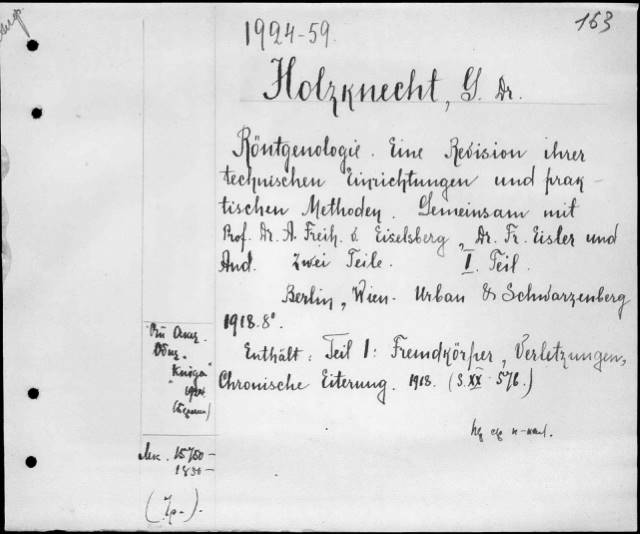 163
1924-59.
Holzknecht, G. Dr.
Röntgenologie. Eine Revision ihrer
technischen Einrichtungen und prak-
tischen Methoden. Gemeinsam mit
Prof. Dr. A. Freih. v. Eiselsberg, Dr. Fr. Eisler und
And. Zwei Teile. I. Teil.
Berlin, Wien. Urban & Schwarzenberg
1918. 8°.
Enthält: Teil I: Fremdkörper, Verletzungen,
Chronische Eiterung. 1918. (S. XX 576.)
"Книга"
1924
15750-
1830-